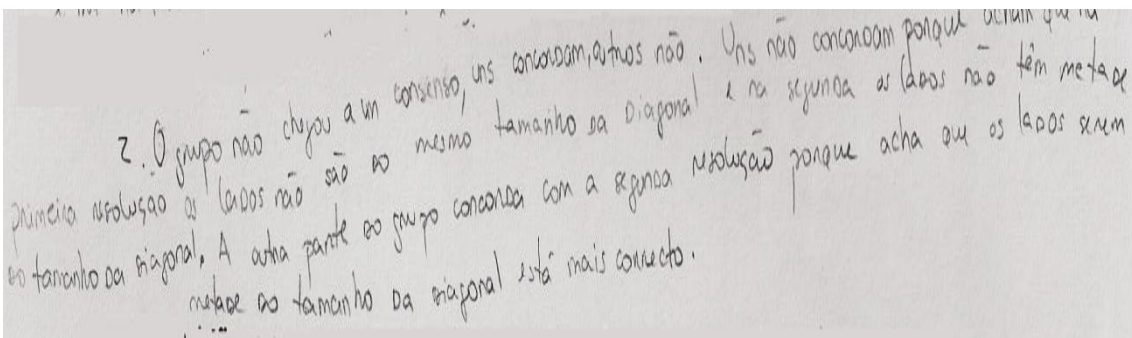 2. O grupo não chegou a um consenso, uns concordam, outros não. Uns não concordam porque acham que na
primeira resolução os lados não são do mesmo tamanho da diagonal e na segunda os lados não têm metade
do tamanho da diagonal. A outra parte do grupo concorda com a segunda resolução porque acha que os lados serem
metade do tamanho da diagonal está mais correcto.